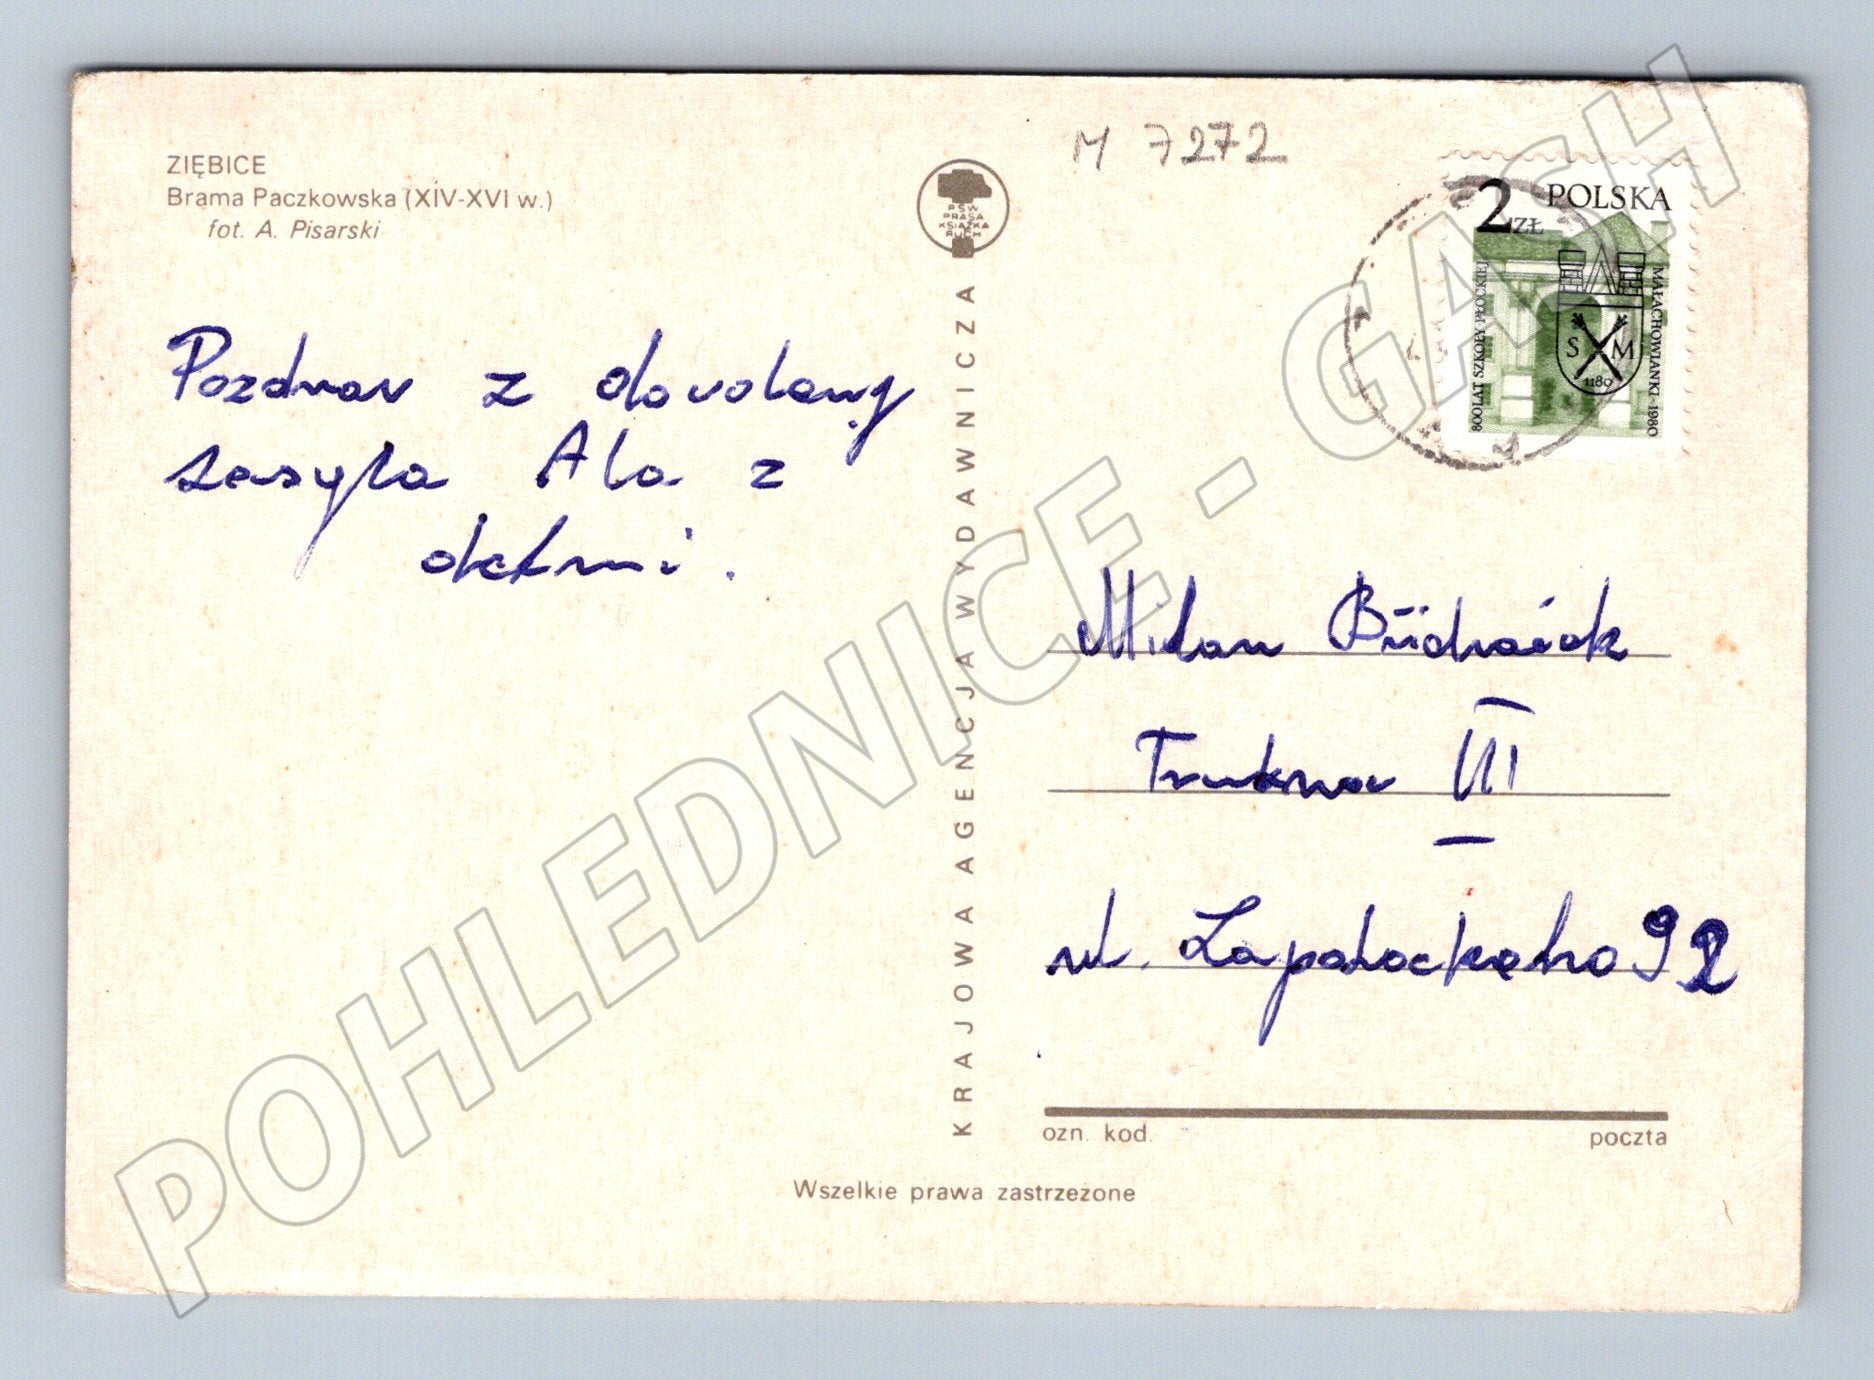 ZIĘBICE
Brama Paczkowska (XIV-XVI w.)
fot. A. Pisarski
Pozdrav z dovoleny
zasyla Ala z
detmi.
PSW
PRASA
KSIĄŻKA
RUCH
KRAJOWA AGENCJA WYDAWNICZA
M 7272
2 ZŁ POLSKA
800 LAT SZKOŁY PŁOCKIEJ
MAŁACHOWIANKI-1980
S M
1180
Milan
III
ul. Zapotockeho 92
ozn. kod. poczta
Wszelkie prawa zastrzeżone
POHLEDNICE - GASH